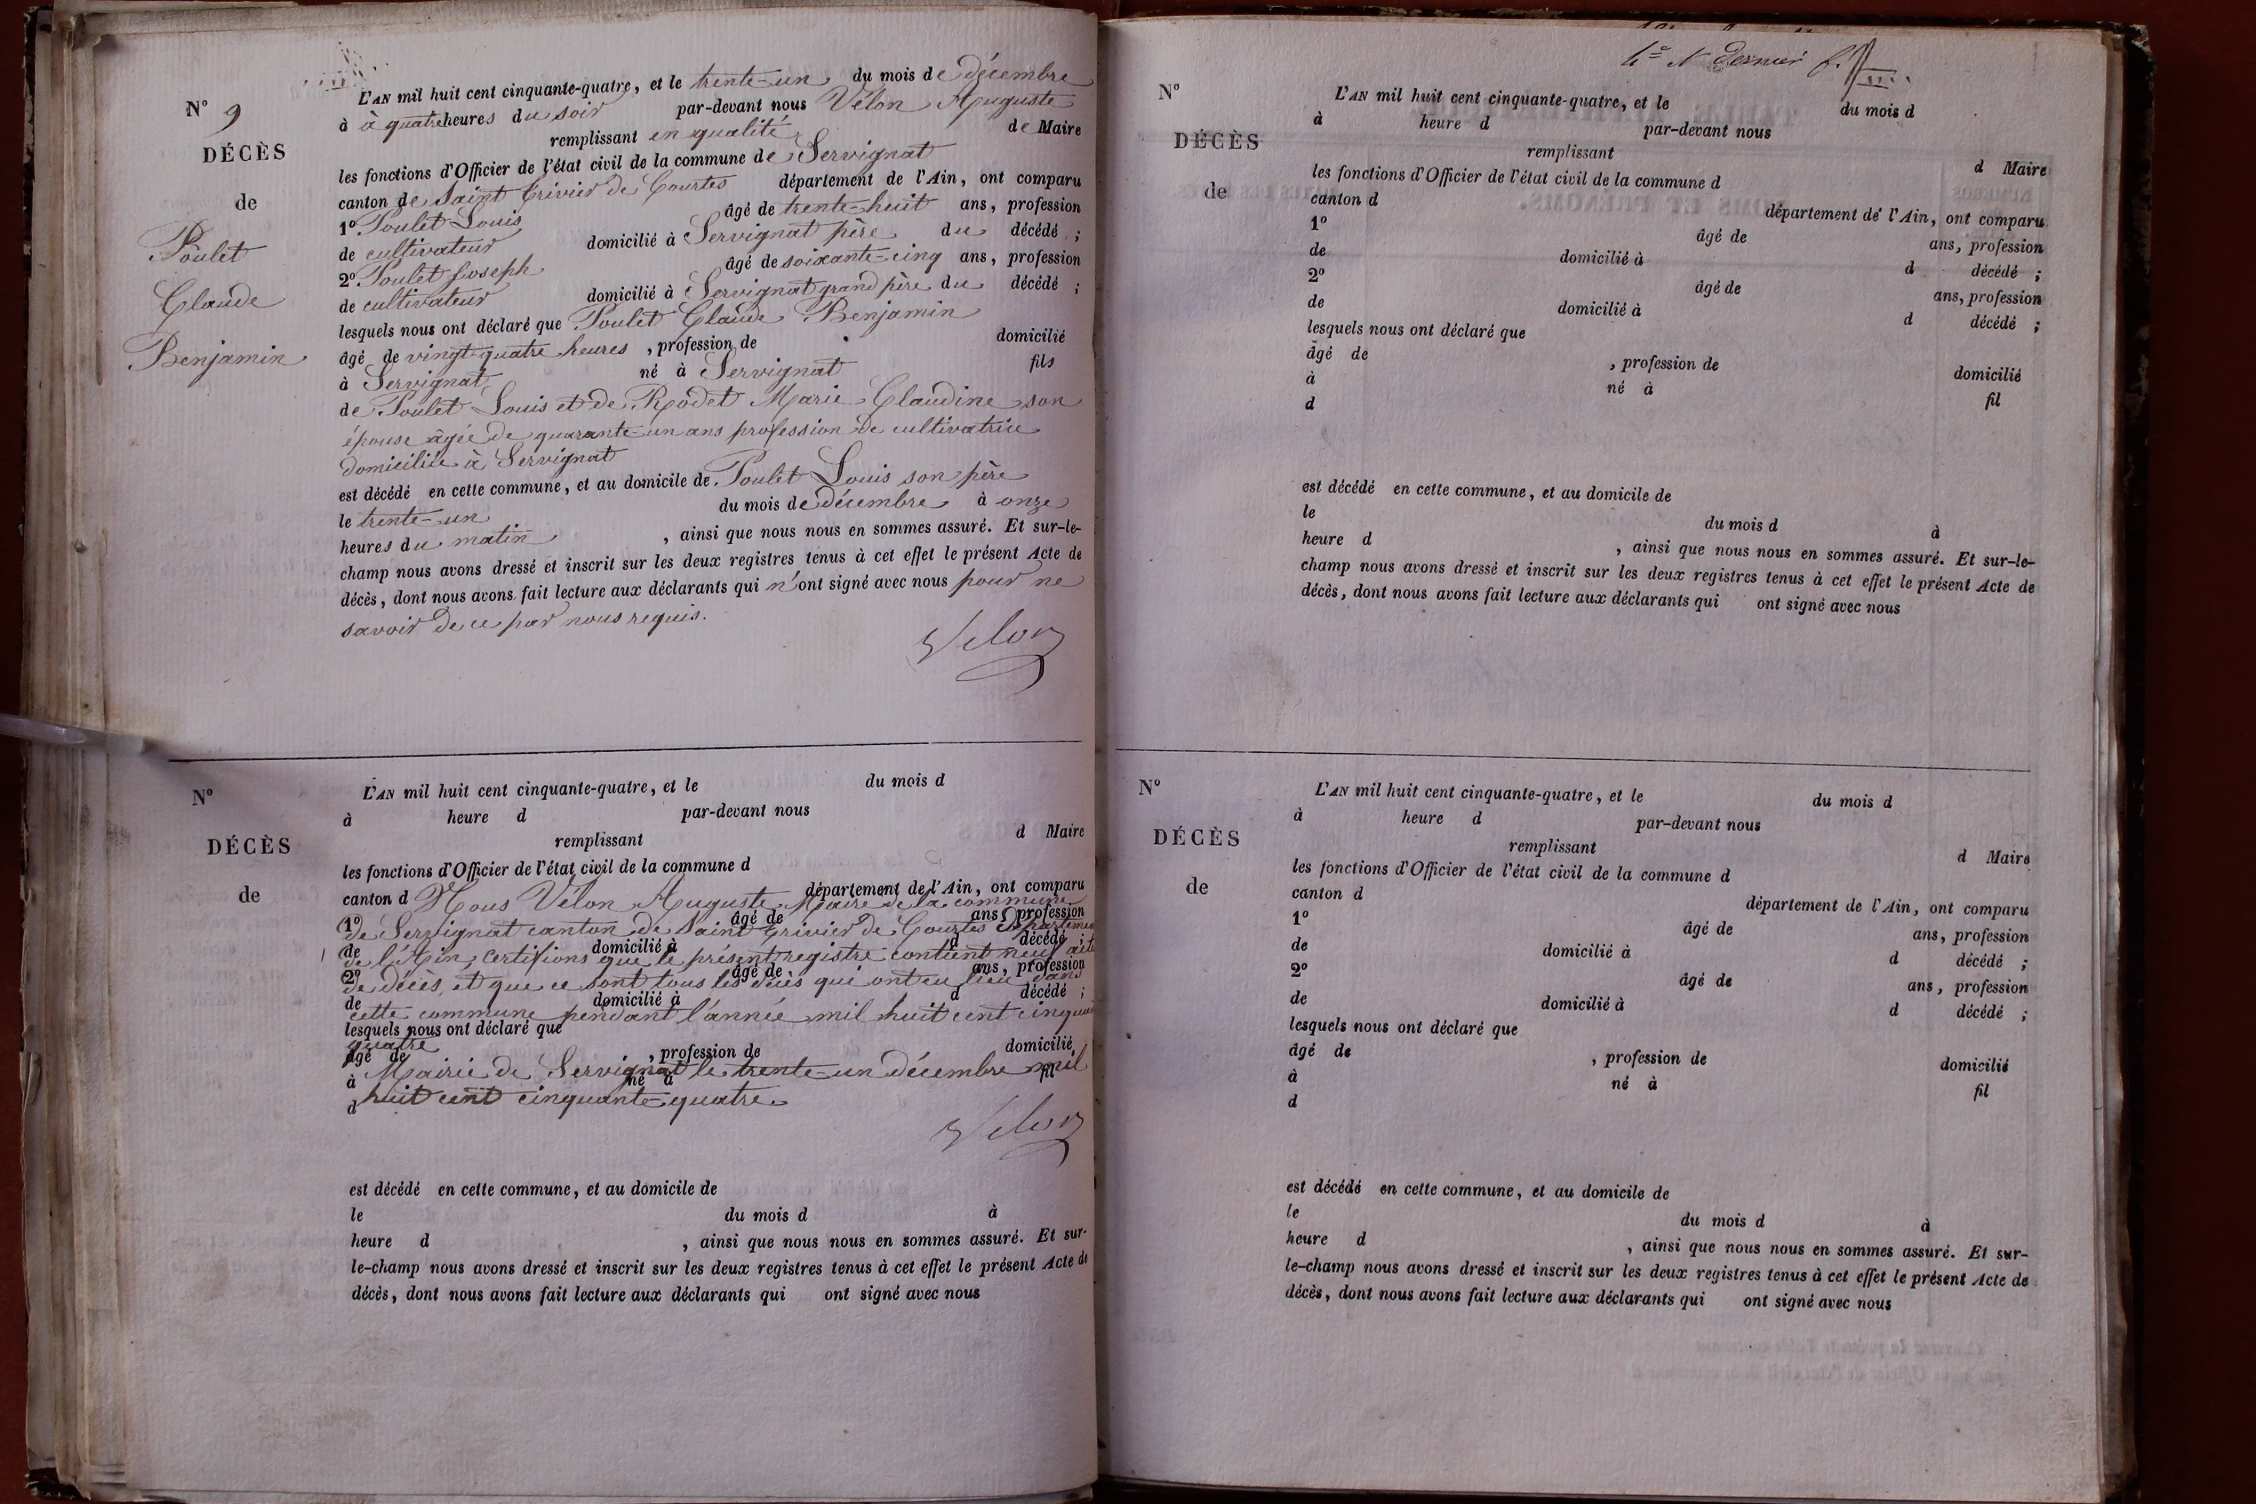 N° 9
DÉCÈS
de
Poulet
Claude
Benjamin
L'AN mil huit cent cinquante-quatre, et le trente-un du mois de décembre
à à quatre heures du soir par-devant nous Vélon Auguste
remplissant en qualité de Maire
les fonctions d'Officier de l'état civil de la commune de Servignat
canton de Saint Trivier de Courtes département de l'Ain, ont comparu
1° Poulet Louis âgé de trente-huit ans, profession
de cultivateur domicilié à Servignat père du décédé ;
2° Poulet Joseph âgé de soixante-cinq ans, profession
de cultivateur domicilié à Servignat grand père du décédé ;
lesquels nous ont déclaré que Poulet Claude Benjamin
âgé de vingt-quatre heures , profession de domicilié
à Servignat né à Servignat fils
de Poulet Louis et de Rodet Marie Claudine son
épouse âgée de quarante-un ans profession de cultivatrice
domiciliée à Servignat
est décédé en cette commune, et au domicile de Poulet Louis son père
le trente-un du mois de décembre à onze
heures du matin , ainsi que nous nous en sommes assuré. Et sur-le-
champ nous avons dressé et inscrit sur les deux registres tenus à cet effet le présent Acte de
décès, dont nous avons fait lecture aux déclarants qui n'ont signé avec nous pour ne
savoir de ce par nous requis.
Velon
N°
DÉCÈS
de
L'AN mil huit cent cinquante-quatre, et le du mois d
à heure d par-devant nous
remplissant d Maire
les fonctions d'Officier de l'état civil de la commune d
canton d département de l'Ain, ont comparu
Nous Vélon Auguste Maire de la commune
1° âgé de ans, profession
de Servignat canton de Saint Trivier de Courtes Département
de domicilié à d décédé ;
de l'Ain, certifions que le présent registre contient neuf acte
2° âgé de ans, profession
de décès, et que ce sont tous les décès qui ont eu lieu dans
de domicilié à d décédé ;
cette commune pendant l'année mil huit cent cinquante
lesquels nous ont déclaré que
quatre
âgé de , profession de domicilié
Mairie de Servignat le trente-un décembre mil
à né à fil
huit cent cinquante-quatre.
d
Velon
est décédé en cette commune, et au domicile de
le du mois d à
heure d , ainsi que nous nous en sommes assuré. Et sur-
le-champ nous avons dressé et inscrit sur les deux registres tenus à cet effet le présent Acte de
décès, dont nous avons fait lecture aux déclarants qui ont signé avec nous
dernier f.
N°
DÉCÈS
de
L'AN mil huit cent cinquante-quatre, et le du mois d
à heure d par-devant nous
remplissant d Maire
les fonctions d'Officier de l'état civil de la commune d
canton d département de l'Ain, ont comparu
1° âgé de ans, profession
de domicilié à d décédé ;
2° âgé de ans, profession
de domicilié à d décédé ;
lesquels nous ont déclaré que
âgé de , profession de domicilié
à né à fil
d
est décédé en cette commune, et au domicile de
le du mois d à
heure d , ainsi que nous nous en sommes assuré. Et sur-le-
champ nous avons dressé et inscrit sur les deux registres tenus à cet effet le présent Acte de
décès, dont nous avons fait lecture aux déclarants qui ont signé avec nous
N°
DÉCÈS
de
L'AN mil huit cent cinquante-quatre, et le du mois d
à heure d par-devant nous
remplissant d Maire
les fonctions d'Officier de l'état civil de la commune d
canton d département de l'Ain, ont comparu
1° âgé de ans, profession
de domicilié à d décédé ;
2° âgé de ans, profession
de domicilié à d décédé ;
lesquels nous ont déclaré que
âgé de , profession de domicilié
à né à fil
d
est décédé en cette commune, et au domicile de
le du mois d à
heure d , ainsi que nous nous en sommes assuré. Et sur-
le-champ nous avons dressé et inscrit sur les deux registres tenus à cet effet le présent Acte de
décès, dont nous avons fait lecture aux déclarants qui ont signé avec nous